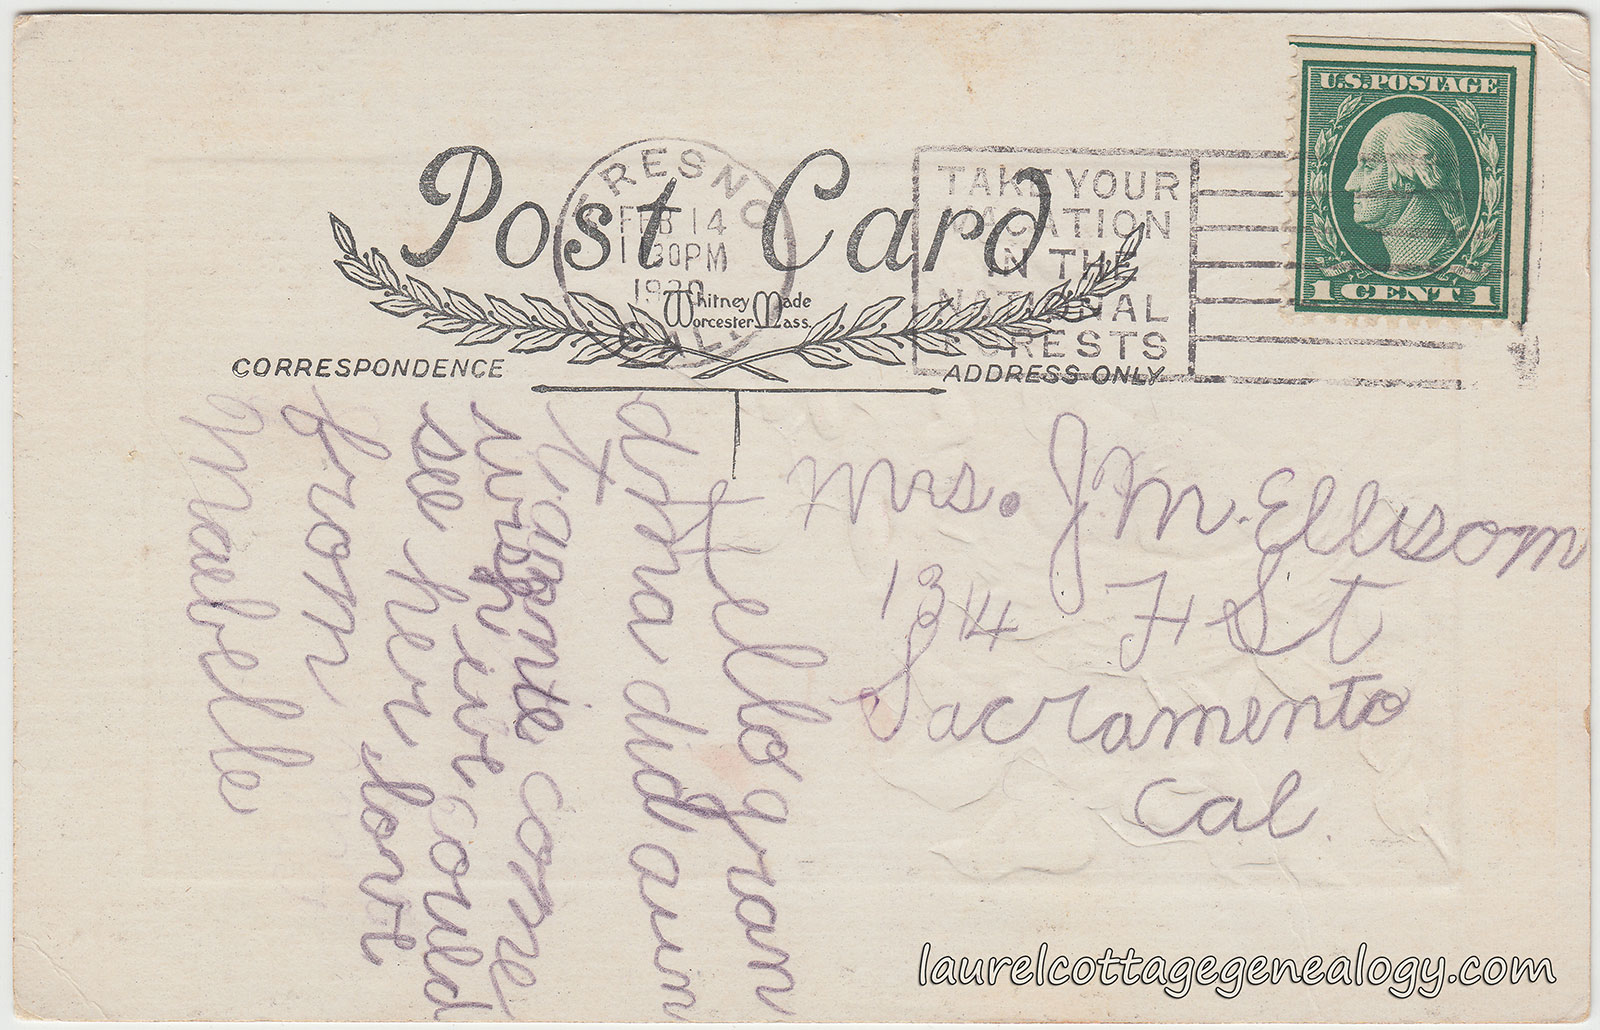 U.S. POSTAGE
1 CENT 1
FRESNO
FEB 14
30PM
CAL
TAKE YOUR
VACATION
IN THE
NATIONAL
FORESTS
Post Card
Whitney Made
Worcester Mass.
CORRESPONDENCE
ADDRESS ONLY
Hello gran
dma did aun
t annie come
wish we could
see her, love
from
Mabelle
Mrs. J M. Ellison
1314 F St
Sacramento
Cal.
laurelcottagegenealogy.com